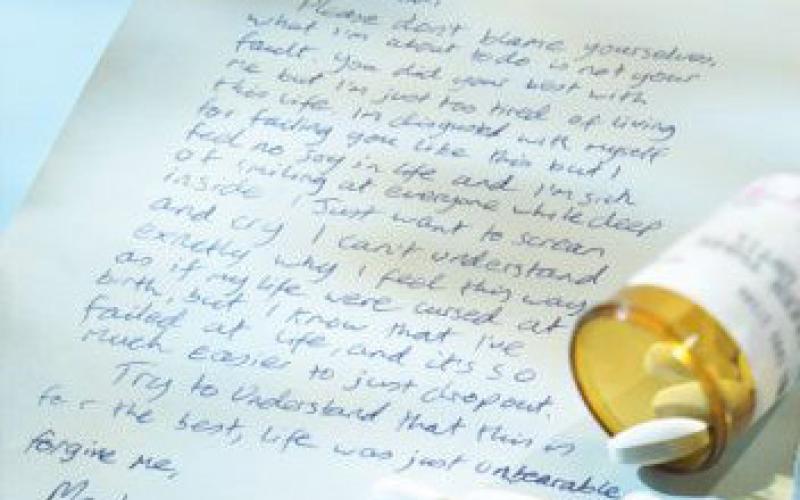 Please don't blame yourselves,
what I'm about to do is not your
fault. You did your best with
me but I'm just too tired of living
this life. I'm disgusted with myself
for failing you like this but I
feel no joy in life and I'm sick
of smiling at everyone while deep
inside I just want to scream
and cry I can't understand
exactly why I feel this way
as if my life were cursed at
birth, but I know that I've
failed at life, and it's so
much easier to just drop out.
Try to understand that this is
for the best, life was just unbearable
forgive me,